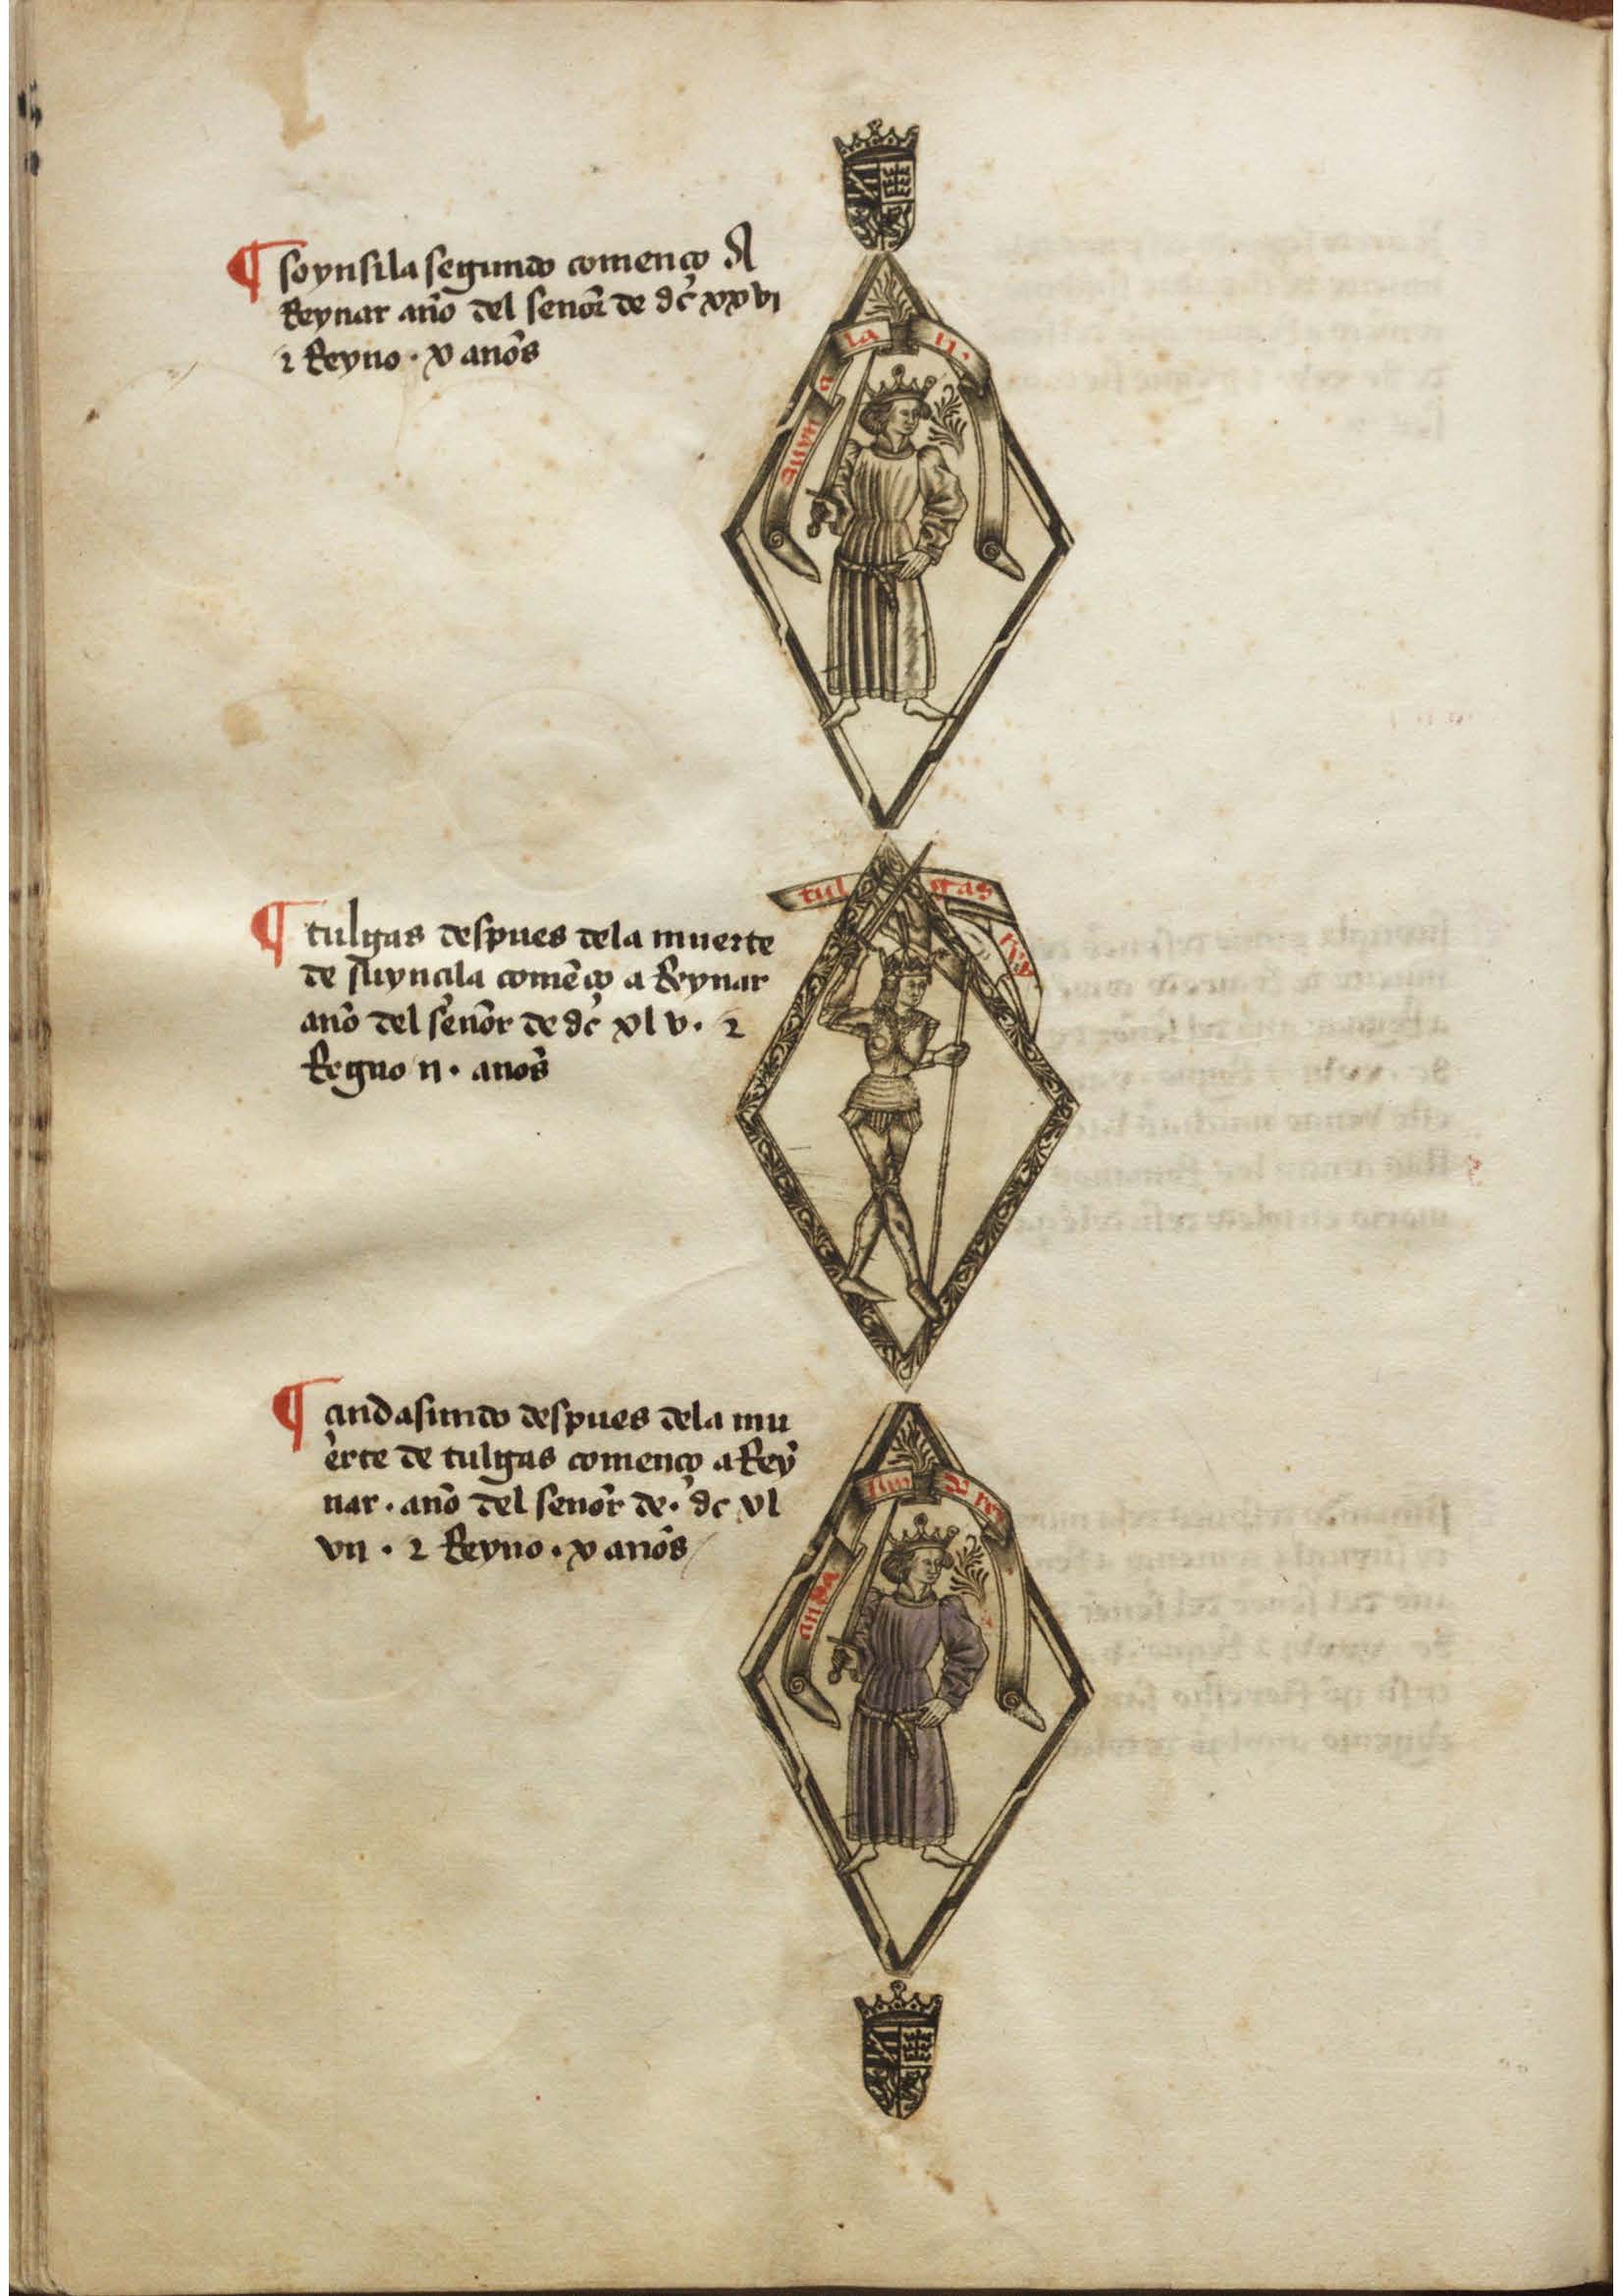 ¶ soynsila segundo començo A
Reynar año del señor de dc̃ xxvi
⁊ Reyno · x años
la ii.
tul gas
Rey
¶ tulgas despues dela muerte
de suyncila comẽço a Reynar
año del señor de dc̃ xl v · ⁊
Regno ii · años
¶ cindasundo despues dela mu
erte de tulgas començo a Rey
nar · año del señor de · dc̃ xl
vii · ⁊ Reyno · x años
cinda sun do rey